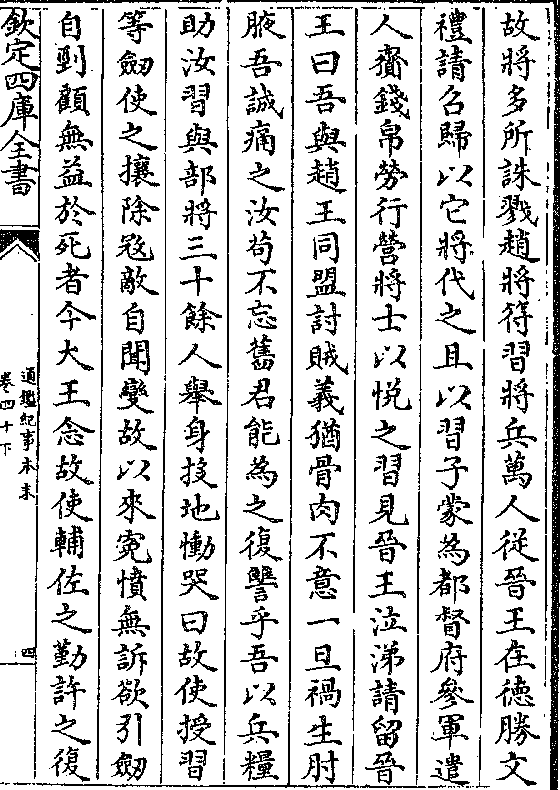 故將多所誅戮趙將符習將兵萬人從晉王在徳勝文
禮請召歸以它將代之且以習子蒙為都督府參軍遣
人齎錢帛勞行營將士以悦之習見晉王泣涕請留晉
王曰吾與趙王同盟討賊義猶骨肉不意一旦禍生肘
腋吾誠痛之汝茍不忘舊君能為之復讐乎吾以兵糧
助汝習與部將三十餘人舉身投地慟哭曰故使授習
等劔使之攘除冦敵自聞變故以來寃憤無訴欲引劔
自剄顧無益於死者今大王念故使輔佐之勤許之復
欽定四庫全書
通鑑紀事本末
卷四十下
四